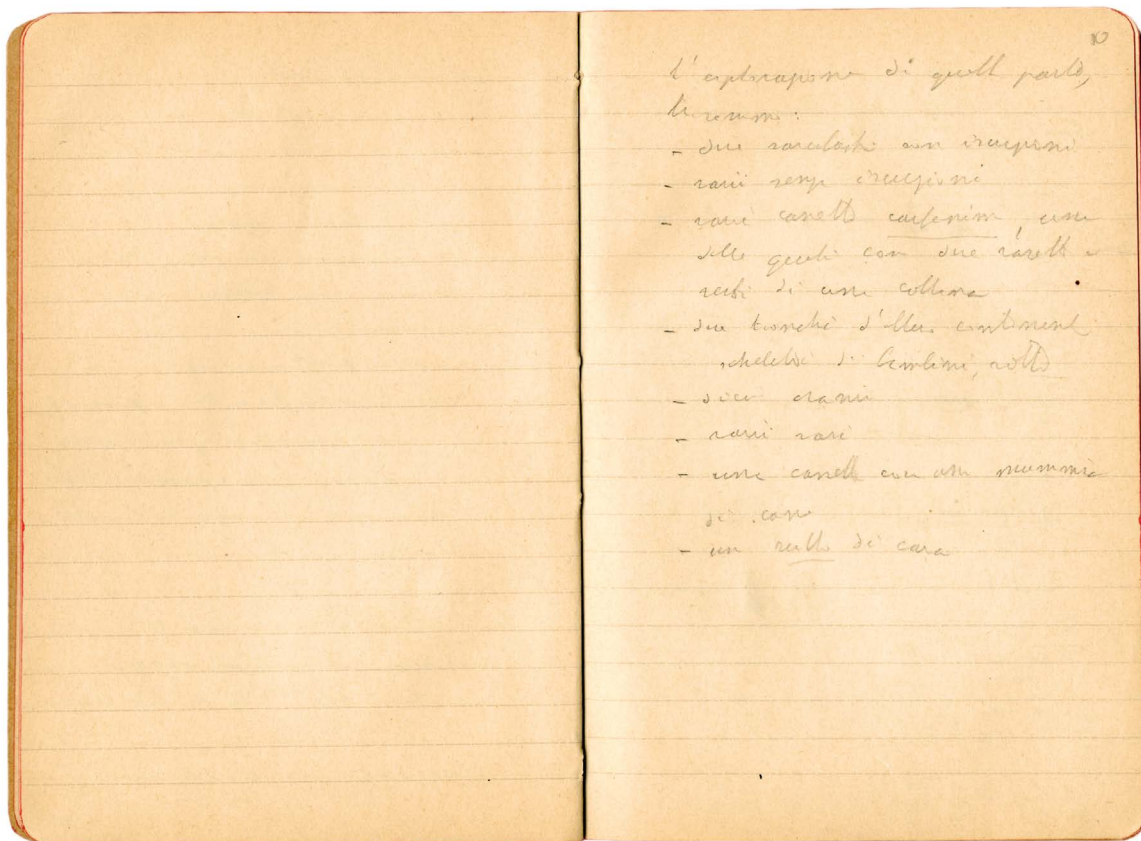 10
l'esplorazione di quella parte,
due sarcofaghi con iscrizioni
- varii senza iscrizioni
- varie cassette una
delle quali con due vasetti e
resti di una collana
- due tronchi d'albero contenenti
scheletri di bambini, rotto
- dieci crani
- varii vasi
- una cassetta con una mummia
di cane
- un di casa